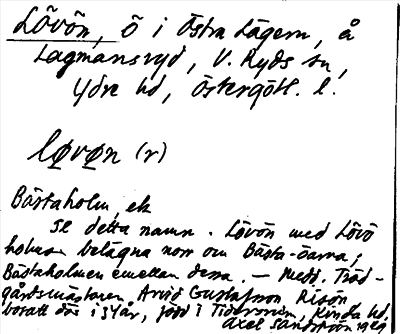 Lövön, ö i Östra Lägern, å
Lagmansryd, V. Ryds sn,
Ydre hd, Östergötl. l.
løvøn (r)
Bästaholm, ek
se detta namn. Lövön med Lövö
holmen belägna norr om Bästa-öarna,
Bästaholmen emellan dessa. – Medd. Träd-
gårdsmästaren Arvid Gustafsson Risön
bosatt där i 54 år, född i Tidersrum, Kinda hd.
Axel Sandström 1929